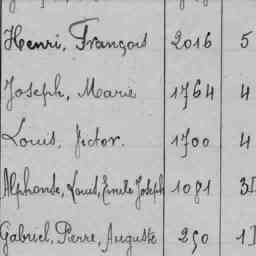 Henri, François 2016 5
Joseph, Marie 1764 4
Louis, Victor. 1700 4
Alphonse, Louis, Emile Joseph 1081
Gabriel, Pierre, Auguste 250